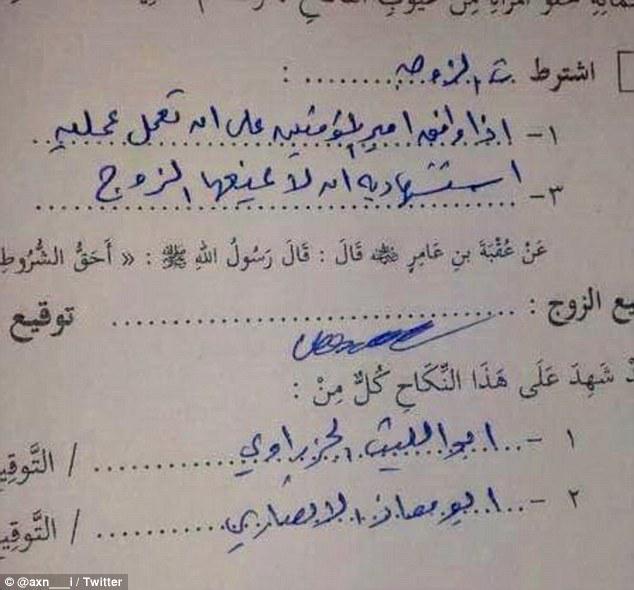 اشترطت الزوجة :
١- اذا وافق امير المؤمنين على ان تعمل عملية
٣- استشهادية ان لا يمنعها الزوج
عَنْ عُقْبَةَ بنِ عَامِرٍ ﷺ قَالَ : قَالَ رَسُولُ اللهِ ﷺ : « أَحَقُّ الشُّرُوطِ
يع الزوج : توقيع
شَهِدَ عَلَى هَذَا النِّكَاحِ كُلٌّ مِنْ :
١ - ابو الليث الجزراوي / التَّوقِي
٢ - ابو معاذ الانصاري / التَّوقِي
© @axn___i / Twitter